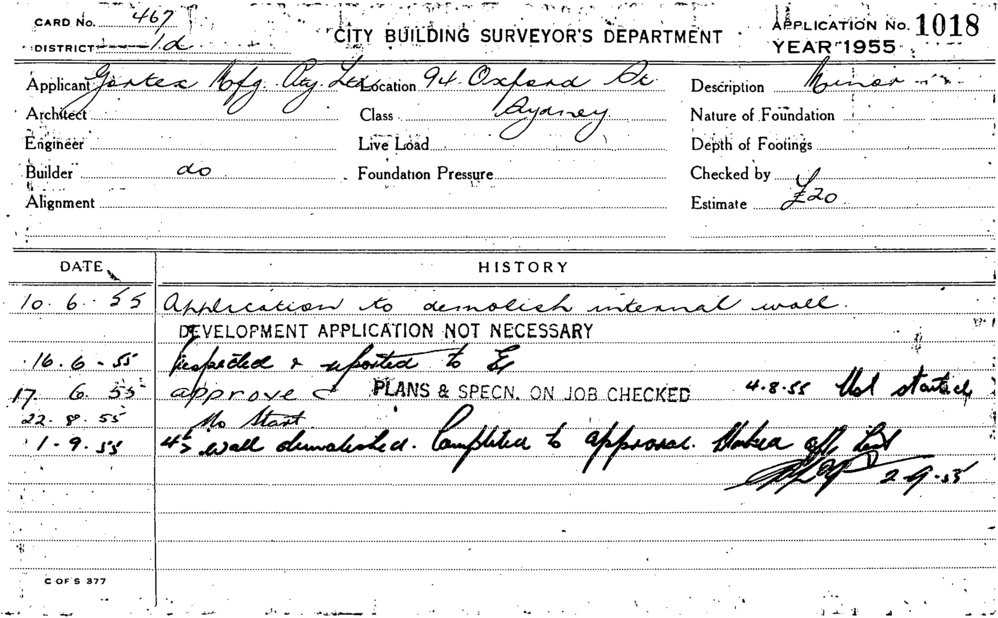 CARD No. 467
DISTRICT 1d
CITY BUILDING SURVEYOR'S DEPARTMENT
APPLICATION No. 1018
YEAR 1955
Applicant Gortex Mfg. Pty. Ltd Location 94 Oxford St Description Minor
Architect Class Sydney Nature of Foundation
Engineer Live Load Depth of Footings
Builder do Foundation Pressure Checked by
Alignment Estimate £20
DATE HISTORY
10. 6. 55 Application to demolish internal wall.
DEVELOPMENT APPLICATION NOT NECESSARY
16. 6 - 55 Inspected & reported to
17 6. 55 approved PLANS & SPECN. ON JOB CHECKED 4-8-55 Not started
22. 8. 55 No Start
1 - 9. 55 wall demolished. Completed to approval. off list
2-9-55
C OF S 377